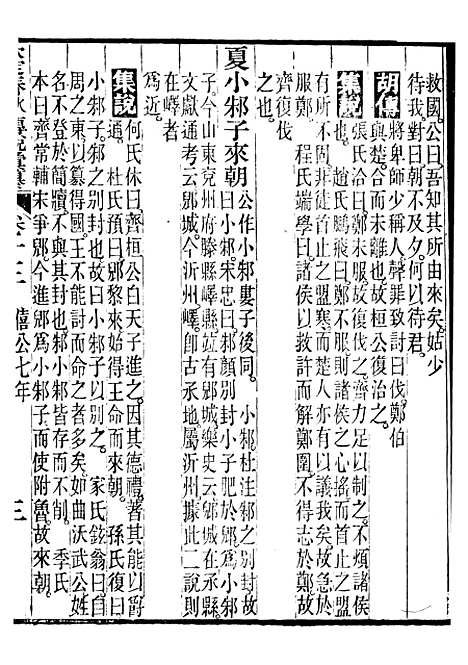 救國。公曰。吾知其所由來矣。姑少
待我。對曰。朝不及夕。何以待君。
胡傳
將卑師少稱人。聲罪致討曰伐。鄭伯
與楚。合而未離也。故桓公復治之。
集說
張氏洽曰。鄭未服。故復伐之。齊力足以制之。不煩諸侯
也。趙氏鵬飛曰。鄭不服則諸侯之心搖。而首止之盟
有所不固。非徒首止之盟寒而楚禍方亦有以議我矣。故急於
服鄭。程氏端學曰。諸侯以救許而解鄭圍。不得志於鄭。故
齊復伐
之也。
夏小邾子來朝
公作小邾婁子後同。小邾。杜注邾之別封。故
曰小邾。宋忠曰。邾顏別封小子肥於郳。為小邾
子。今山東兗州府滕縣嶧縣竝有郳城。樂史云。郳城在承縣。
文獻通考云。郳城。今沂州嶧。卽古承地。屬沂州。據此二說。則
在嶧者
為近。
集說
何氏休曰。齊桓公白天子進之。因其德禮。著其能以爵
通。杜氏預曰。郳黎來始得王命而來朝。孫氏復曰
小邾子之別封也。故曰小邾子以別之。家氏鉉翁曰。自
周之東。以篡得國。王不能討而命之者多矣。如曲沃武公。姓
名不登於簡牘。不與其封也。邾小邾皆存而不制。季氏
本曰。齊常輔宋爭郳。今進郳為小邾子。而使附魯。故來朝。
卷十三 僖公七年 三